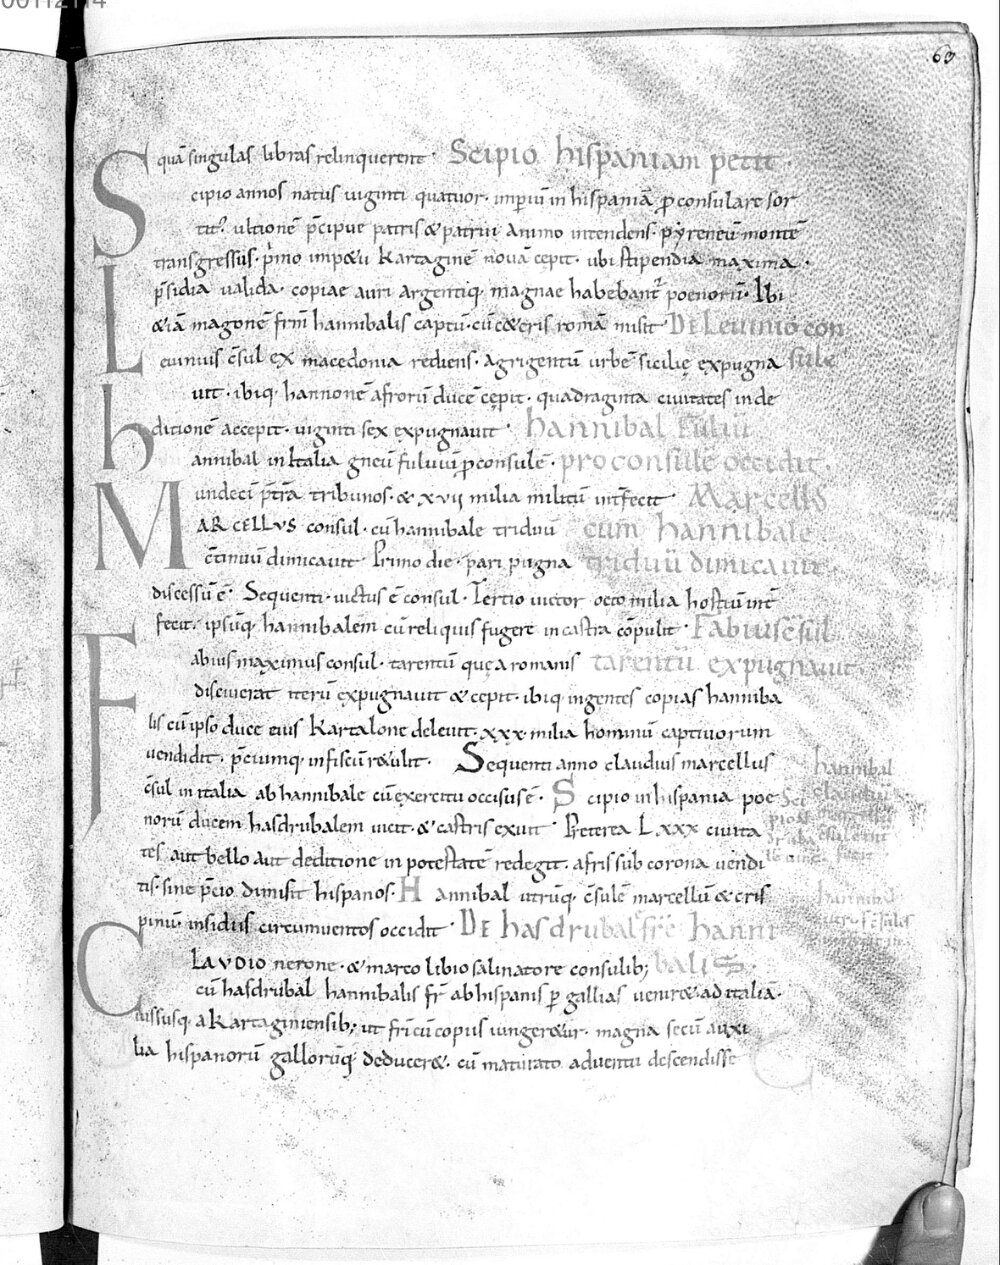 60
quā singulas libras relinquerent· Scipio hispaniam petit
Scipio annos natus uiginti quatuor· imperiū in hispaniā p̄consulare sor
tit᷒· ultionē p̄cipue patris & patrui animo intendens· pẏreneū montē
transgressus· primo impetu kartaginē nouā cepit· ubi stipendia maxima·
p̄sidia ualida· copiae auri argentiq; magnae habebant᷒ poenorū· Ibi
&iā magonē frm̄ hannibalis captū· cū c&eris romā misit· DE Leuinio con
Leuinius c̄sul ex macedonia rediens· agrigentū urbē sicilię expugna sule
uit· ibiq; hannonē afrorū ducē cępit· quadraginta ciuitates in de
ditionē accepit· uiginti sex expugnauit· hannibal fuluiū
hannibal in Italia gneū fuluiū p̄consulē· proconsulē occidit·
undeci p̄t̄ea tribunos· & xvii milia militū int̄fecit· Marcellus
MARCELLVS consul· cū hannibale triduū cum hannibale
c̄tinuū dimicauit· Primo die· pari pugna triduū dimicauit·
discessū ē· Sequenti· uictus ē consul· Tertio uictor octo milia hostiū int̄
fecit· ipsūq; hannibalem cū reliquis fugere in castra cōpulit· Fabius c̄sul
Fabius maximus consul· tarentū quę a romanis tarentū expugnauit
disciuerat iterū expugnauit & cepit· ibiq; ingentes copias hanniba
lis cū ipso duce eius kartalone deleuit· xxx· milia hominū captiuorum
uendidit· p̄ciumq; in fiscū r&ulit· Sequenti anno claudius marcellus hannibal
c̄sul in italia ab hannibale cū exercitu occisus ē· Scipio in hispania poe Sci claudiū
norū ducem hasdrubalem uicit· & castris exuit· Preterea Lxxx ciuita pio
tes aut bello aut deditione in potestatē redegit· afris sub corona uendi
tis· sine p̄cio dimisit hispanos· Hannibal utrūq; c̄sulē marcellū & cris hannibal
pinū· insidiis circumuentos occidit· DE hasdrubale fr̄e hanni utrosq; c̄sules
CLAVDIO nerone· & marco libio salinatore consulib; balis
cū hasdrubal hannibalis fr̄ ab hispanis p̱ gallias uenir& ad italiā·
iussusq; a kartaginiensib; ut fri cū copiis iunger&ur· magna secū auxi
lia hispanorū gallorūq; deducer&· cū maturato aduentu descendisse